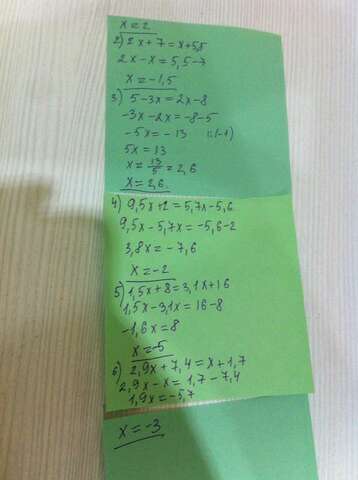 x = 2
2) 2x + 7 = x + 5,5
2x - x = 5,5 - 7
x = -1,5
3) 5 - 3x = 2x - 8
-3x - 2x = -8 - 5
-5x = -13 |:(-1)
5x = 13
x = 13/5 = 2,6
x = 2,6
4) 9,5x + 2 = 5,7x - 5,6
9,5x - 5,7x = -5,6 - 2
3,8x = -7,6
x = -2
5) 1,5x + 8 = 3,1x + 16
1,5x - 3,1x = 16 - 8
-1,6x = 8
x = -5
6) 2,9x + 7,4 = x + 1,7
2,9x - x = 1,7 - 7,4
1,9x = -5,7
x = -3